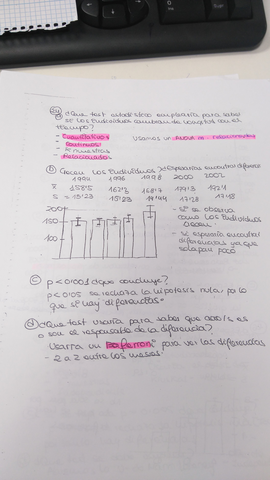 ¿Que test estadístico emplearía para saber
si los individuos cambian de longitud con el
tiempo?
- Cuantitativo
- Continuo
- muestras
- Relacionadas
Usamos un ANOVA de
b) Crecen los individuos? ¿Esperarias encontrar diferencias
1994 1996 1998 2000 2002
x̄ 158'5 162'3 168'7 171'3
S = 15'23 15'23 17'44 17'28 17'18
200
150
100
- Si se observa
como los individuos
crecen
- Si esperaria encontrar
diferencias ya que
c) p<0'001 ¿que concluye?
p<0'05 se rechaza la hipotesis nula, por lo
que si hay diferencias
d) ¿Que test usaria para saber que año/s es
o son el responsable de la diferencia?
Usaria un Bonferroni para ver las diferencias
- 2 a 2 entre los meses